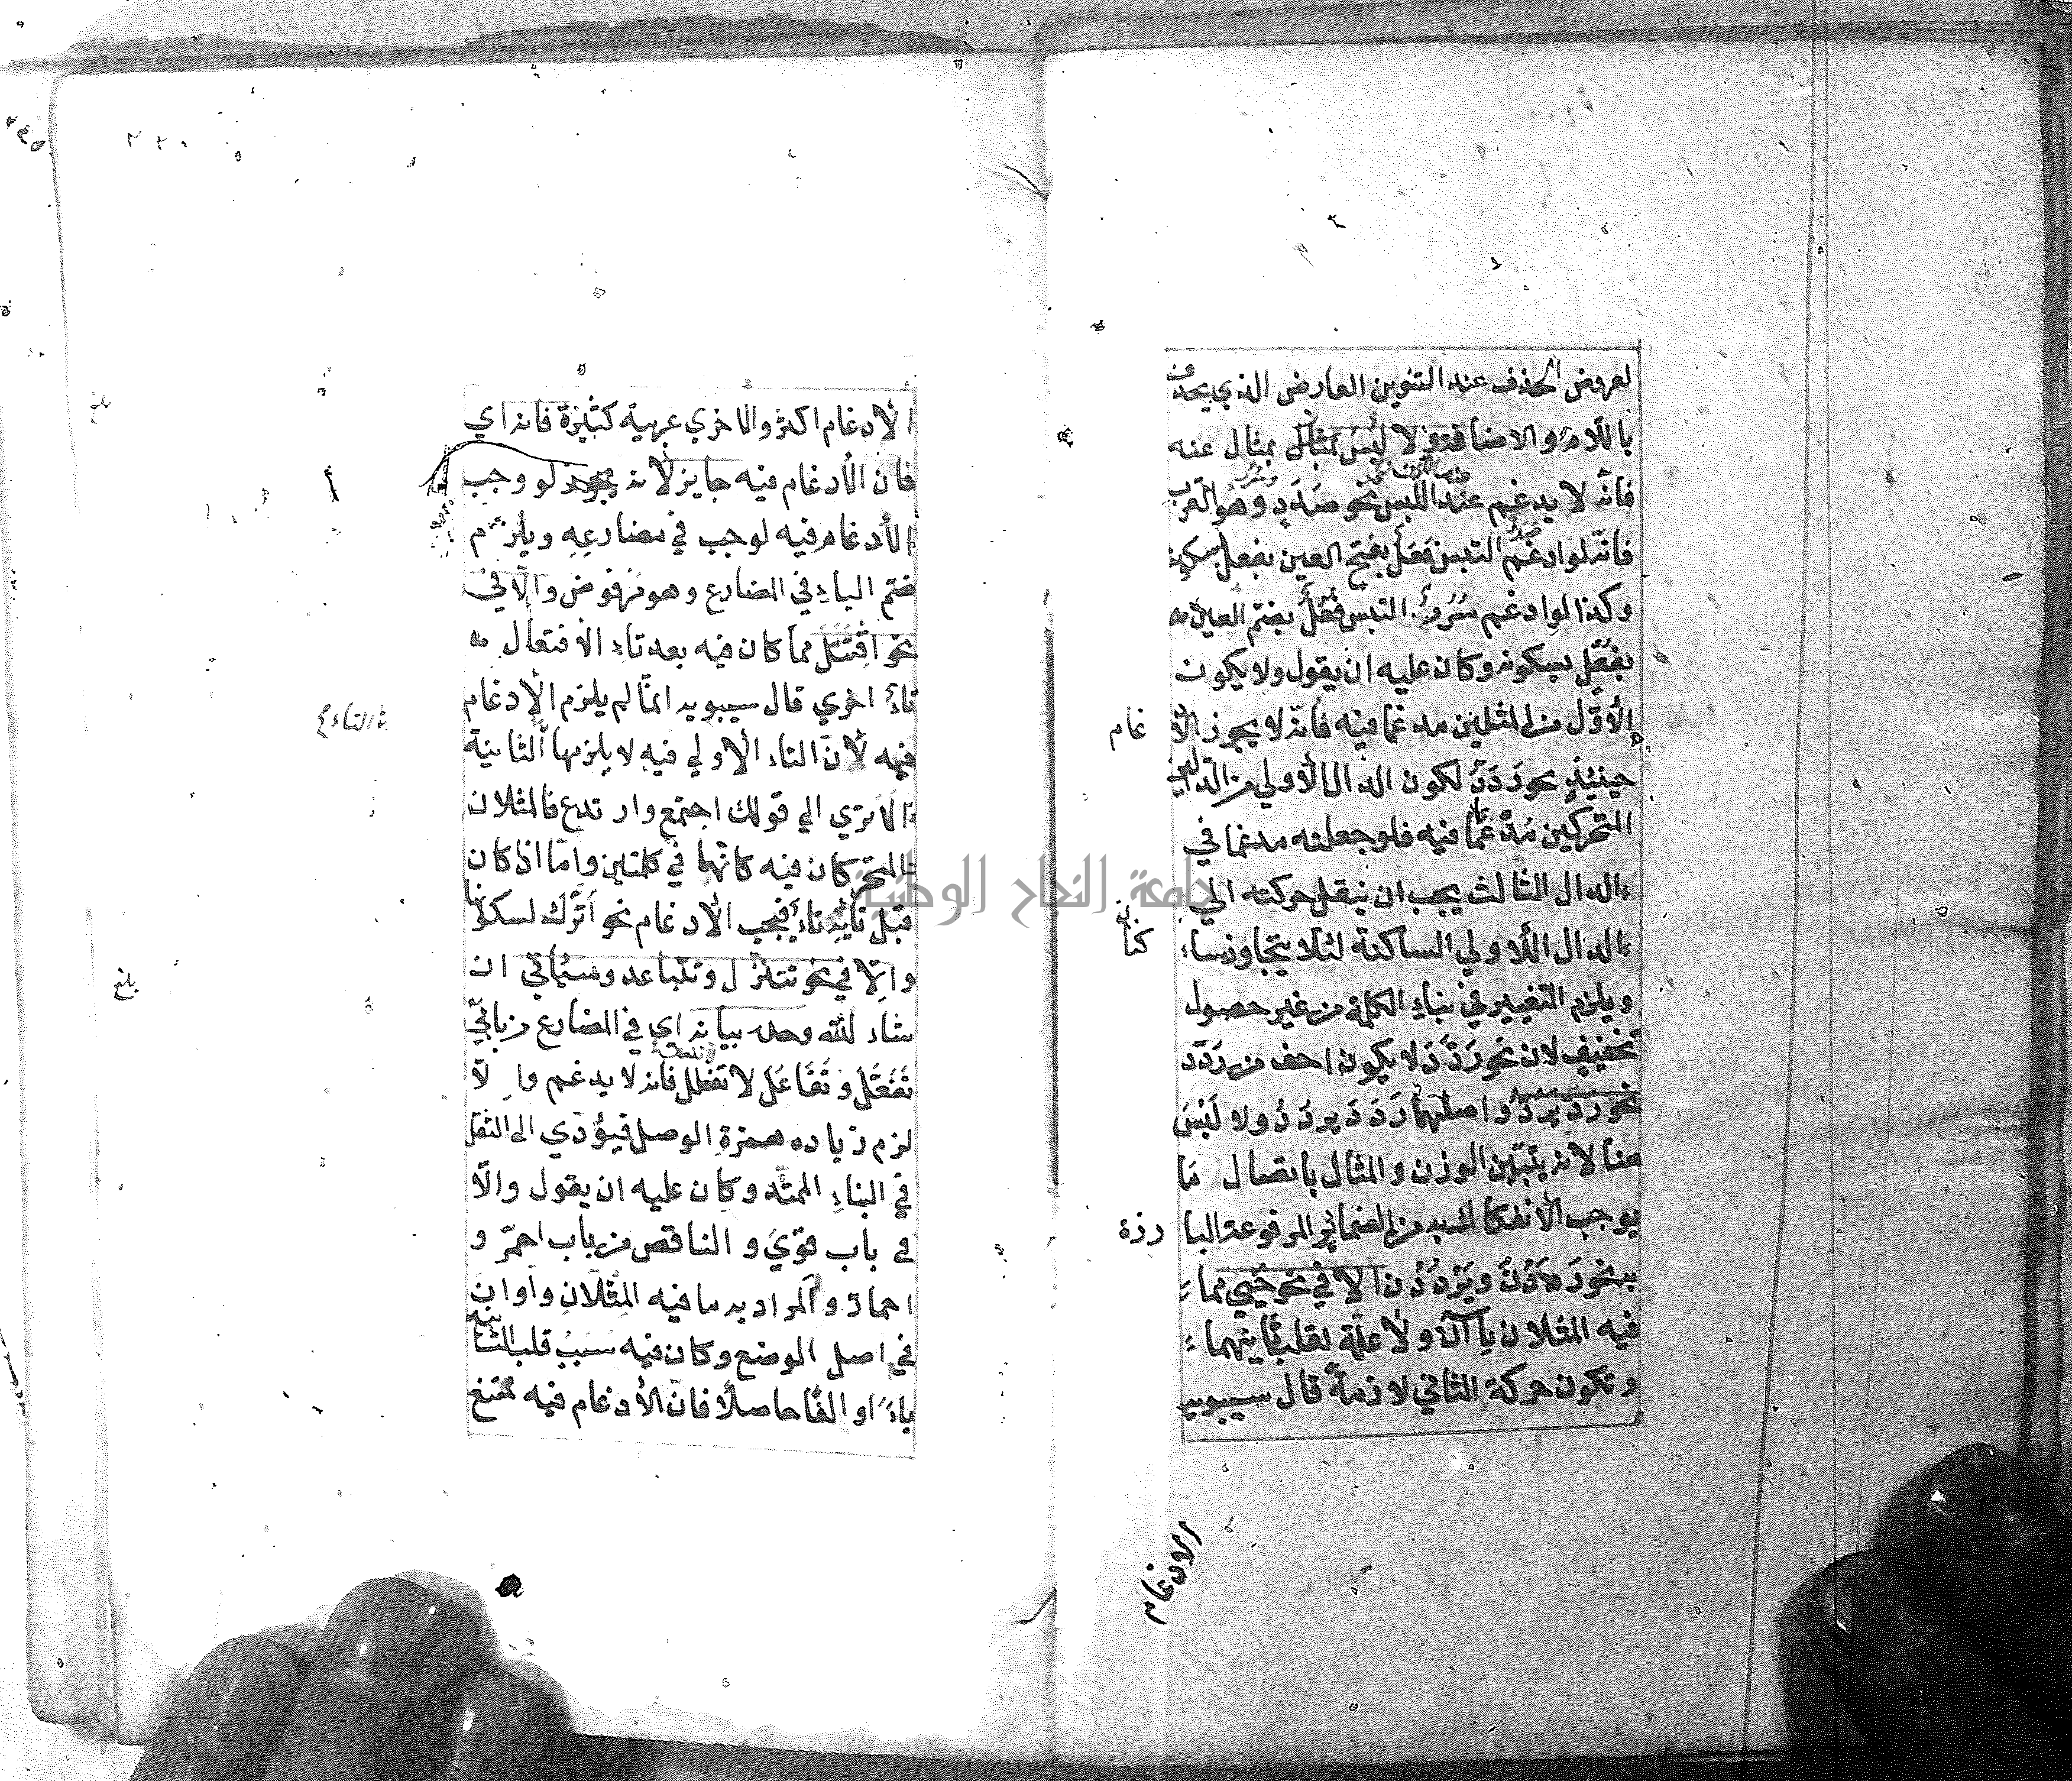 لعروض الحذف عند التنوين العارض الذي يحذف
باللام والاضافة ولا لبس بمثال عنه
فانّه لا يدغم عند اللبس نحو صَدَدٍ وهو القرب
فانّه لو ادغم التبس فَعَلٌ بفتح العين بفعل بسكونه
وكذا لو ادغم سُرُرٌ التبس فُعُلٌ بضم العين
بفُعْلٍ بسكونه وكان عليه ان يقول ولا يكون
الأوّل من المثلين مدغما فيه فانّه لا يجوز الادغام
حينئذٍ نحو رَدَّدَ لكون الدال الأولي من الدالين
المتحركين مُدْغَمًا فيه فلو جعلته مدغما في
الدال الثالث يجب ان ينقل حركته الي
الدال الأولي الساكنة لئلا يتجاوز ساكنان
ويلزم التغيير في بناءِ الكلمة من غير حصول
تخفيفٍ لان نحو رَدَّدَ لا يكون اخف من رَدَّدَ
نحو ردّ يَرُدُّ واصلهما رَدَدَ يردُدُ ولا لَبْسَ
هنا لانه يتبيّن الوزن والمثال باتصال مَا
يوجب الأنفكاك به من الضمائر المرفوعة البارزة
بنحو رَدَدْنَ ويَرْدُدْنَ الا في نحو حَيِيَ مما
فيه المثلان ياآن ولا علّة لقلب ثانيهما
وتكون حركة الثاني لازمةً قال سيبويه
الادغام
٢٢٠
الأدغام اكثر والاخري عربية كثيرة فانه اي
فان الأدغام فيه جايز لانه لو وجب
الأدغام فيه لوجب في مضارعِهِ ويلزم
ضم الياءِ في المضارع وهو مرفوض والا في
نحو اقْتَتَلَ مما كان فيه بعد تاء الافتعال
تاءٌ اخري قال سيبويه انمّا لم يلزم الإدغام
فيه لأن التاء الأولي فيه لا يلزمها الثانية
الا تري الي قولك اجتمع وارتدع فالمثلان
كان فيه كانّهما في كلمتين وامّا اذا كان
قبل تائِه تاءٌ فيجب الأدغام نحو اتّرك لسكونها
والّا في نحو تتنزّل وتتباعد وسيأتي ان
شاء الله وحده بيانه اي في المضارع من بابي
تَفَعَّلَ وتَفَاعَلَ لا تفعلل فانه لا يدغم والّا
لزم زياده همزة الوصل فيؤدي الى الثقل
في البناءِ وكان عليه ان يقول والّا
في باب قَوِيَ والناقص من باب احمرّ و
احمارّ والمراد به ما فيه المِثْلانِ واوان
في اصل الوضع وكان فيه سَبَبُ قلب الثانية
ياءً او الفًا حاصلًا فان الأدغام فيه ممتنع
بلغ
جامعة النجاح الوطنية